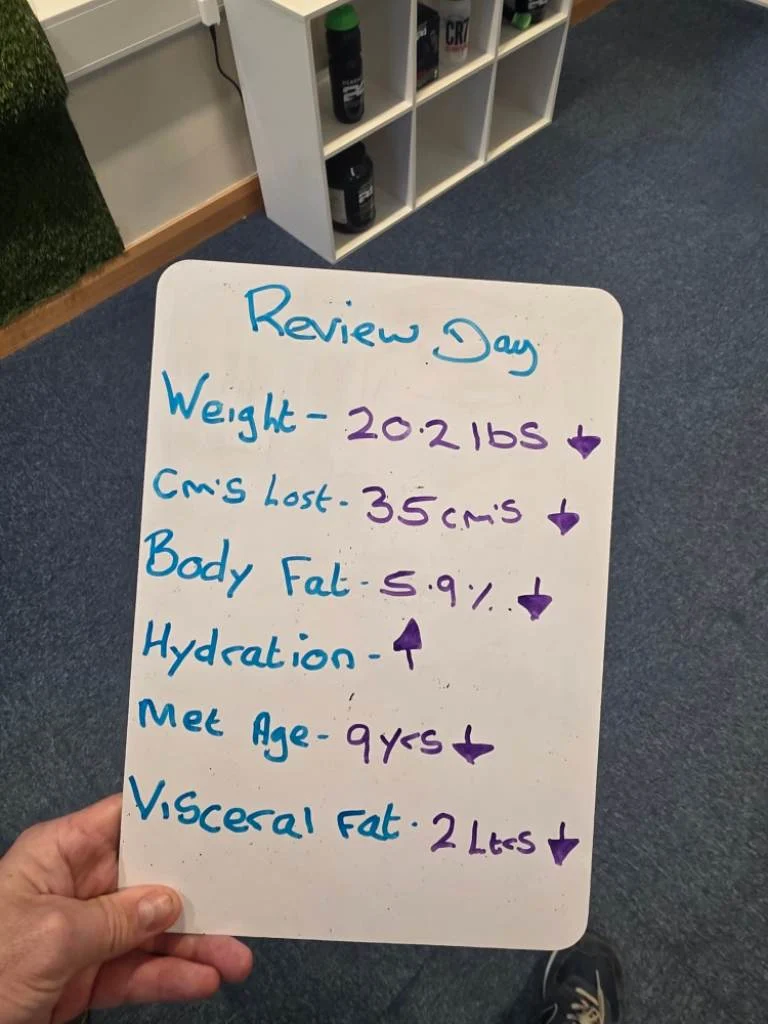 CR7
Review Day
Weight - 20.2 lbs ↓
Cm's Lost - 35cm's ↓
Body Fat - 5.9% ↓
Hydration - ↑
Met Age - 9yrs ↓
Visceral Fat - 2 Ltrs ↓